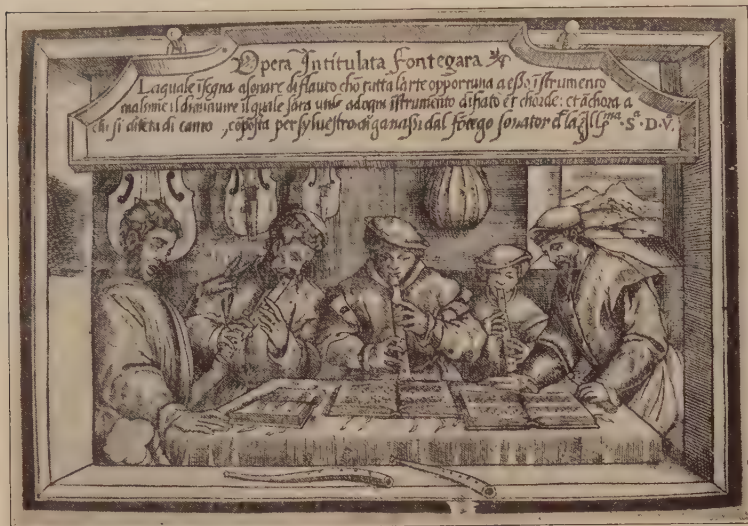 Opera Intitulata Fontegara
Laquale ĩsegna a sonare di flauto chõ tutta l'arte opportuna a esso ĩstrumento
massime il diminuire il quale sara utile ad ogni ĩstrumento di fiato et chorde: et ãchora a
chi si diletta di canto, cõposta per sylvestro di ganassi dal fõtego sonator d. la Illma. Sa. D. Va.